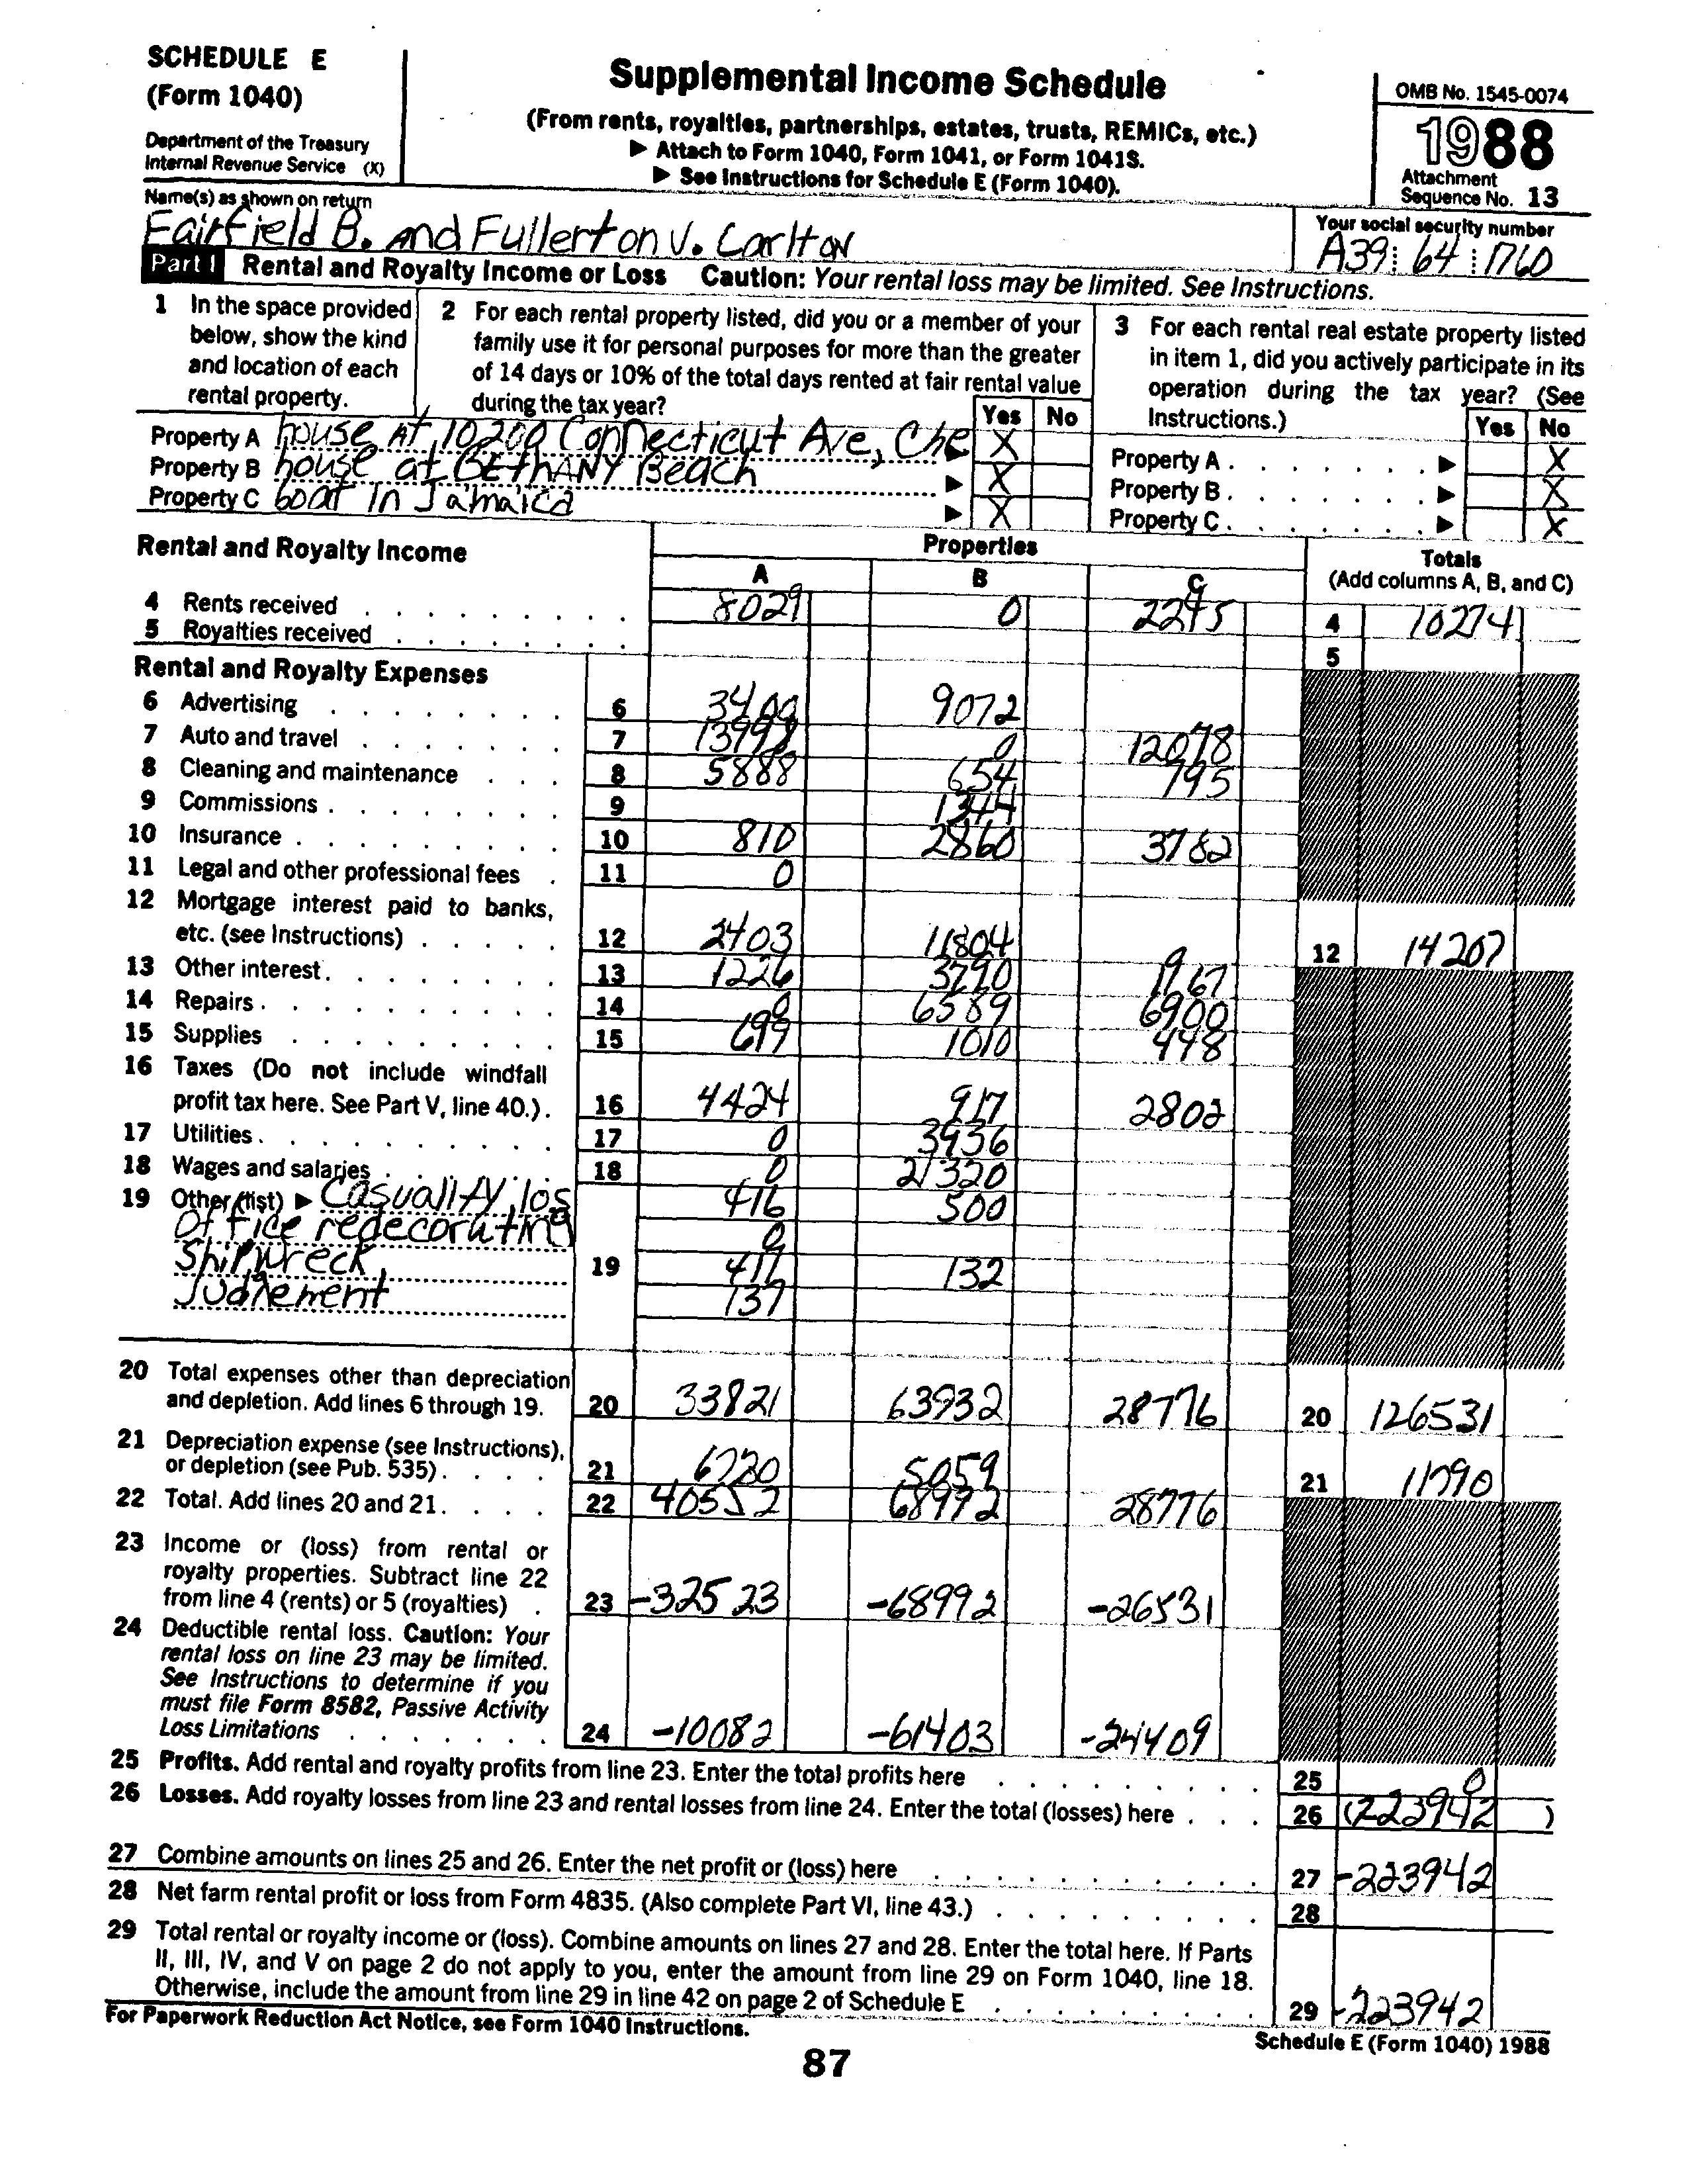 SCHEDULE E
(Form 1040)
Department of the Treasury
Internal Revenue Service (X)
Supplemental Income Schedule
(From rents, royalties, partnerships, estates, trusts, REMICs, etc.)
▶ Attach to Form 1040, Form 1041, or Form 1041S.
▶ See Instructions for Schedule E (Form 1040).
OMB No. 1545-0074
1988
Attachment
Sequence No. 13
Name(s) as shown on return
Fairfield B. and Fullerton V. Carlton
Your social security number
A39 64 1760
Part I Rental and Royalty Income or Loss Caution: Your rental loss may be limited. See Instructions.
1 In the space provided below, show the kind and location of each rental property.
2 For each rental property listed, did you or a member of your family use it for personal purposes for more than the greater of 14 days or 10% of the total days rented at fair rental value during the tax year?
Yes No
3 For each rental real estate property listed in item 1, did you actively participate in its operation during the tax year? (See Instructions.)
Yes No
Property A house at 10200 Connecticut Ave, Che ▶ X
Property B house at BEthANY Beach ▶ X
Property C boat in Jamaica ▶ X
Property A . ▶ X
Property B . ▶ X
Property C . ▶ X
Rental and Royalty Income
Properties
A B C
Totals
(Add columns A, B, and C)
4 Rents received 8029 0 2245 4 10274
5 Royalties received 5
Rental and Royalty Expenses
6 Advertising 6 3400 9072
7 Auto and travel 7 13998 0 12078
8 Cleaning and maintenance 8 5888 654 795
9 Commissions 9 1344
10 Insurance 10 810 2860 3782
11 Legal and other professional fees 11 0
12 Mortgage interest paid to banks, etc. (see Instructions) 12 2403 11804 12 14207
13 Other interest 13 1226 3790 1967
14 Repairs 14 0 6589 6900
15 Supplies 15 699 1010 448
16 Taxes (Do not include windfall profit tax here. See Part V, line 40.) 16 4424 917 2802
17 Utilities 17 0 3936
18 Wages and salaries 18 0 21320
19 Other (list) ▶ Casuality los 416 500
Office redecorating 0
Shipwreck 19 417 132
Judgement 137
20 Total expenses other than depreciation and depletion. Add lines 6 through 19. 20 33821 63932 28776 20 126531
21 Depreciation expense (see Instructions), or depletion (see Pub. 535) 21 6730 5059 21 11790
22 Total. Add lines 20 and 21. 22 40552 68992 28776
23 Income or (loss) from rental or royalty properties. Subtract line 22 from line 4 (rents) or 5 (royalties) 23 -32523 -68992 -26531
24 Deductible rental loss. Caution: Your rental loss on line 23 may be limited. See Instructions to determine if you must file Form 8582, Passive Activity Loss Limitations 24 -10082 -61403 -24409
25 Profits. Add rental and royalty profits from line 23. Enter the total profits here 25 0
26 Losses. Add royalty losses from line 23 and rental losses from line 24. Enter the total (losses) here 26 (223942)
27 Combine amounts on lines 25 and 26. Enter the net profit or (loss) here 27 -223942
28 Net farm rental profit or loss from Form 4835. (Also complete Part VI, line 43.) 28
29 Total rental or royalty income or (loss). Combine amounts on lines 27 and 28. Enter the total here. If Parts
II, III, IV, and V on page 2 do not apply to you, enter the amount from line 29 on Form 1040, line 18.
Otherwise, include the amount from line 29 in line 42 on page 2 of Schedule E 29 -223942
For Paperwork Reduction Act Notice, see Form 1040 Instructions.
Schedule E (Form 1040) 1988
87